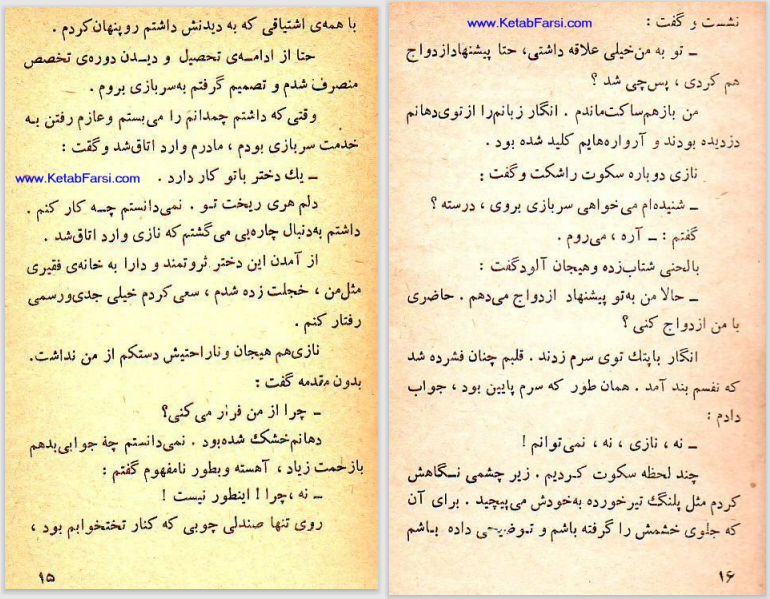 با همه‌ی اشتیاقی که به دیدنش داشتم رو پنهان کردم .
حتا از ادامه‌ی تحصیل و دیدن دوره‌ی تخصص
منصرف شدم و تصمیم گرفتم به سربازی بروم .
وقتی که داشتم چمدانم را می‌بستم و عازم رفتن به
خدمت سربازی بودم ، مادرم وارد اتاق شد و گفت :
ــ یك دختر باتو کار دارد .
www.KetabFarsi.com
دلم هری ریخت تو . نمی‌دانستم چه کار کنم .
داشتم به‌دنبال چاره‌یی می‌گشتم که نازی وارد اتاق شد .
از آمدن این دختر ثروتمند و دارا به خانه‌ی فقیری
مثل من ، خجلت زده شدم ، سعی کردم خیلی جدی و رسمی
رفتار کنم .
نازی هم هیجان و ناراحتیش دستکم از من نداشت.
بدون مقدمه گفت :
ــ چرا از من فرار می‌کنی؟
دهانم خشک شده بود . نمی‌دانستم چهٔ جوابی بدهم
با زحمت زیاد ، آهسته و بطور نامفهوم گفتم :
ــ نه ، چرا ! اینطور نیست !
روی تنها صندلی چوبی که کنار تختخوابم بود ،
۱۵
نشست و گفت :
www.KetabFarsi.com
ــ تو به من خیلی علاقه داشتی، حتا پیشنهاد ازدواج
هم کردی ، پس چی شد ؟
من باز هم ساکت ماندم . انگار زبانم را از توی دهانم
دزدیده بودند و آرواره‌هایم کلید شده بود .
نازی دوباره سکوت را شکت و گفت :
ــ شنیده‌ام می‌خواهی سربازی بروی ، درسته ؟
گفتم : ــ آره ، می‌روم .
بالحنی شتاب‌زده و هیجان آلود گفت :
ــ حالا من به‌تو پیشنهاد ازدواج می‌دهم . حاضری
با من ازدواج کنی ؟
انگار با پتك توی سرم زدند . قلبم چنان فشرده شد
که نفسم بند آمد . همان طور که سرم پایین بود ، جواب
دادم :
ــ نه ، نازی ، نه ، نمی‌توانم !
چند لحظه سکوت کردیم . زیر چشمی نگاهش
کردم مثل پلنگ تیر خورده به‌خودش می‌پیچید . برای آن
که جلوی خشمش را گرفته باشم و توضیحی داده باشم
۱۶